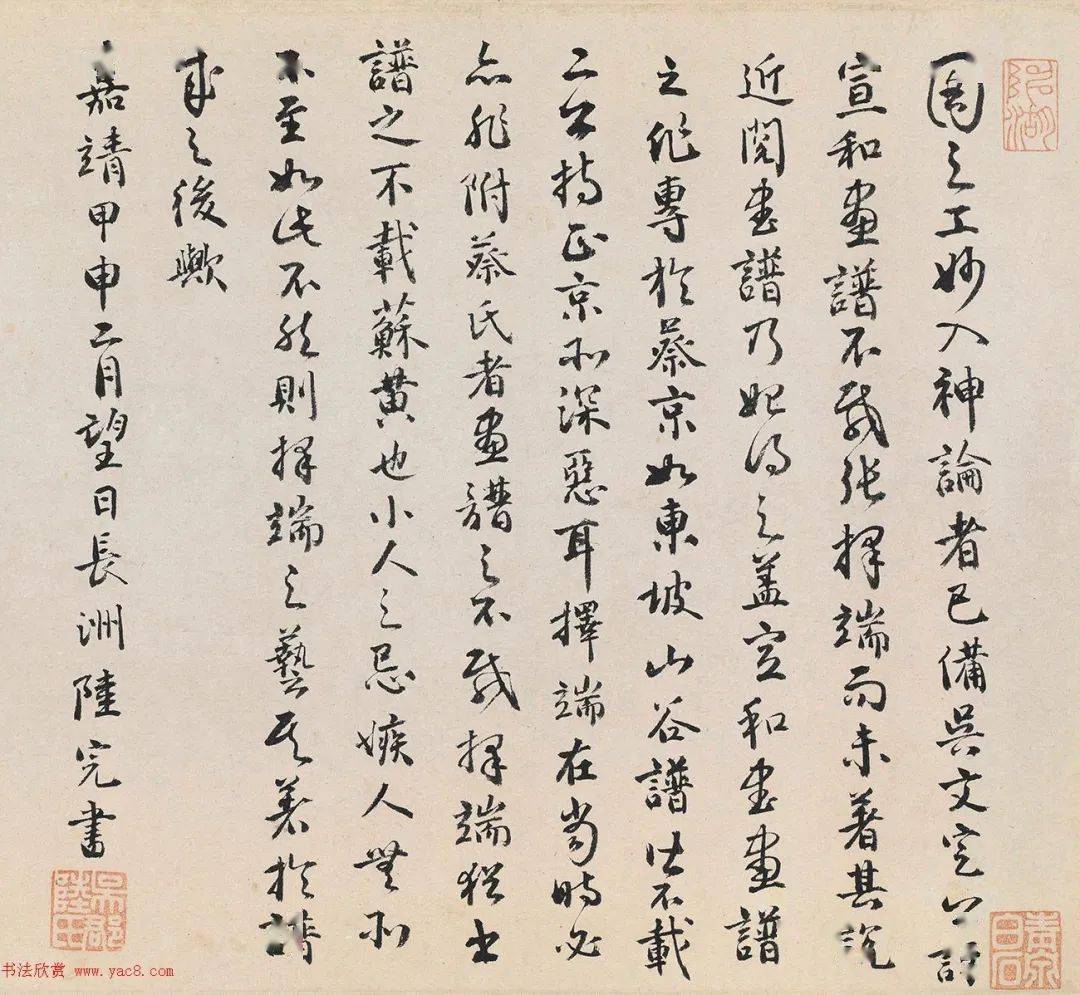 圖之工妙入神論者已備吳文定公訝
宣和畫譜不載張擇端而未著其說
近閱書譜乃始得之盖宣和書畫譜
之作專於蔡京如東坡山谷譜皆不載
二公持正京所深惡耳擇端在當時必
亦非附蔡氏者畫譜之不載擇端猶書
譜之不載蘇黄也小人之忌嫉人無所
不至如此不然則擇端之藝其著於譜
成之後歟
嘉靖甲申二月望日長洲陸完書
吳郡陸氏
书法欣赏 www.yac8.com